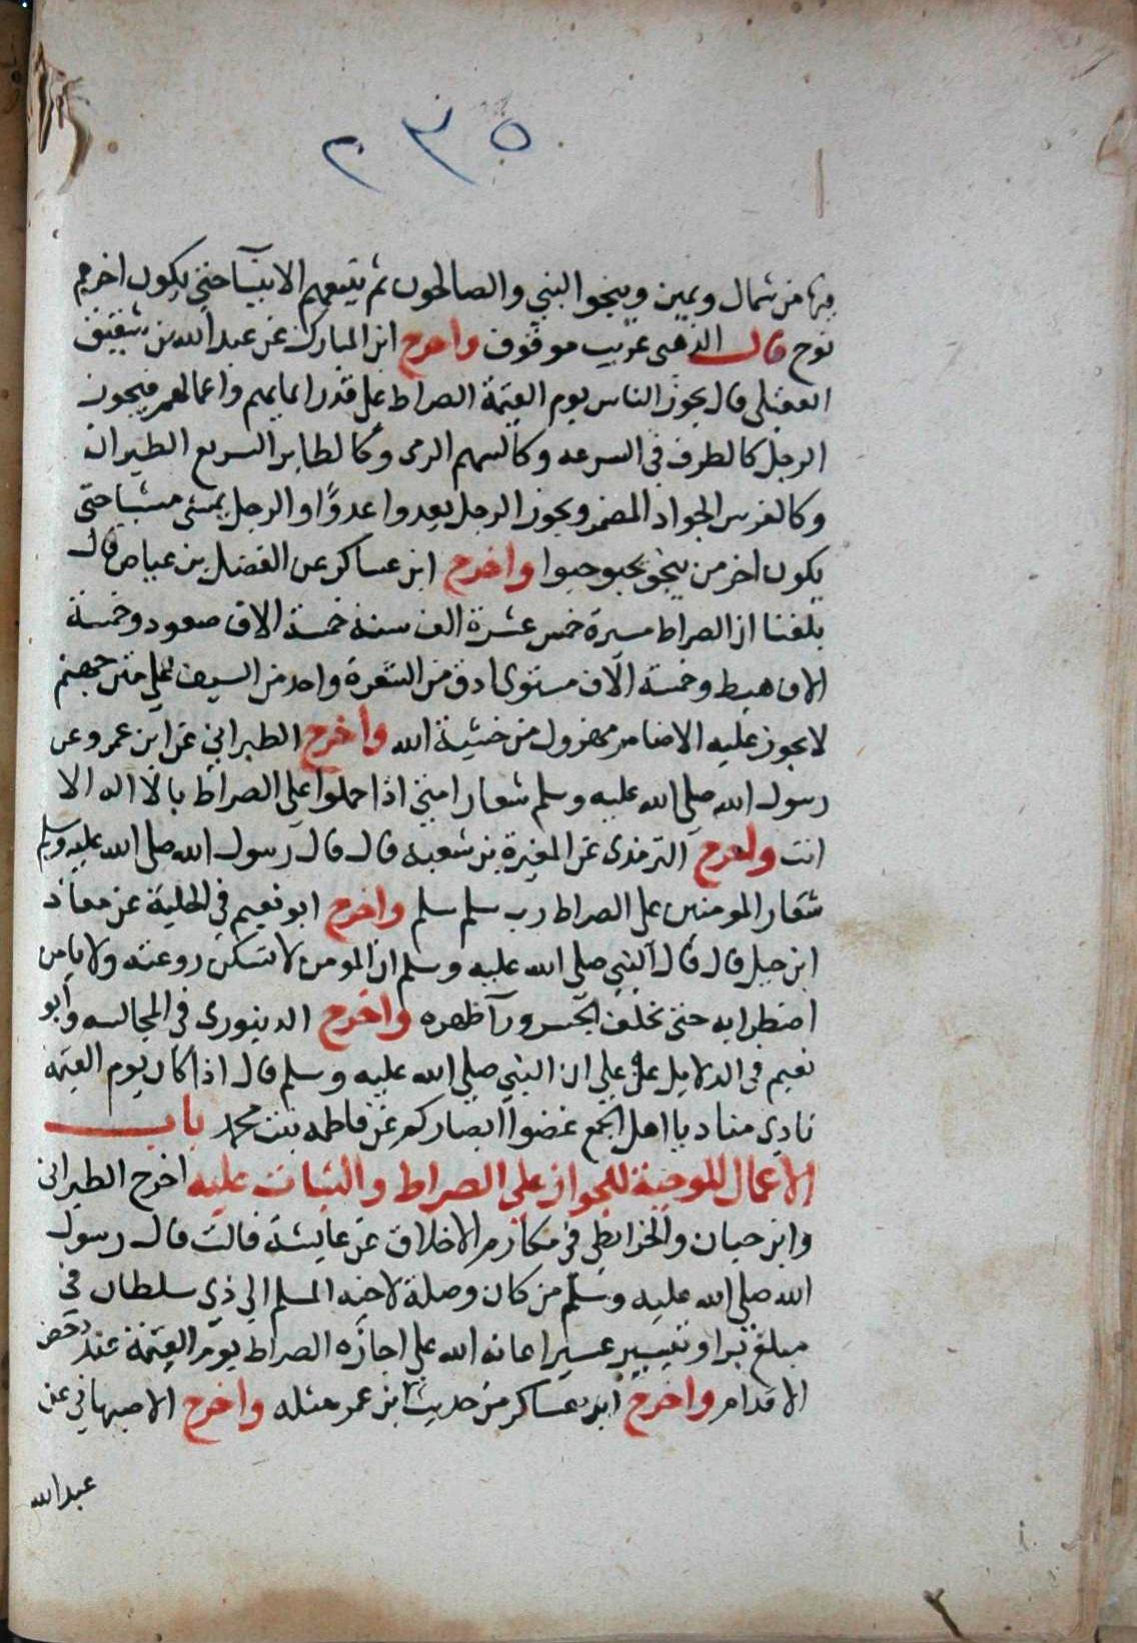 ٢٣٥
فيها من شمال ويمين وينجوا النبي والصالحون ثم يتبعهم الانبيا حتي يكون اخرهم
نوح قال الذهبي غريب موقوف واخرج ابن المبارك عن عبد الله بن شقيق
العقيلي قال يجوز الناس يوم القيمة الصراط علي قدر ايمانهم واعمالهم فيجوز
الرجل كالطرف في السرعه وكالسهم الرمي وكالطاير السريع الطيران
وكالفرس الجواد المضمر ويجوز الرجل يعدوا عدوًا والرجل يمشي مشياحتي
يكون اخر من ينجو يحبو حبوا واخرج ابن عساكر عن الفضيل بن عياض قال
بلغنا ان الصراط مسيرة خمس عشرة الف سنة خمسة الاف صعود وخمسة
الاف هبط وخمسة الاف مستوي ادق من الشعرة واحد من السيف علي متن جهنم
لا يجوز عليه الا ضامر مهزول من خشية الله واخرج الطبراني عن ابن عمرو عن
رسول الله صلي الله عليه وسلم شعار امتي اذا حملوا علي الصراط يا لا اله الا
انت واخرج الترمذي عن المغيرة بن شعبة قال قال رسول الله صلي الله عليه وسلم
شعار المومنين علي الصراط رب سلم سلم واخرج ابو نعيم في الحلية عن معاذ
ابن جبل قال قال النبي صلي الله عليه وسلم ان المومن لا تسكن روعته ولا يامن
اضطرابه حتي يخلف الجسر ورآ ظهره واخرج الدينوري في المجالسه وابو
نعيم في الدلايل عن علي ان النبي صلي الله عليه وسلم قال اذا كان يوم القيمة
نادي مناد يا اهل الجمع غضوا ابصاركم عن فاطمه بنت محمد باب
الاعمال الموجبة للجواز علي الصراط والثبات عليه اخرج الطبراني
وابن حبان والخرايطي في مكارم الاخلاق عن عايشة قالت قال رسول
الله صلي الله عليه وسلم من كان وصلة لاخيه المسلم الي ذي سلطان في
مبلغ بر او تيسير عسير اعانه الله علي اجازه الصراط يوم القيمة عند دحض
الاقدام واخرج ابن عساكر من حديث ابن عمر مثله واخرج الاصبهاني عن
عبد الله